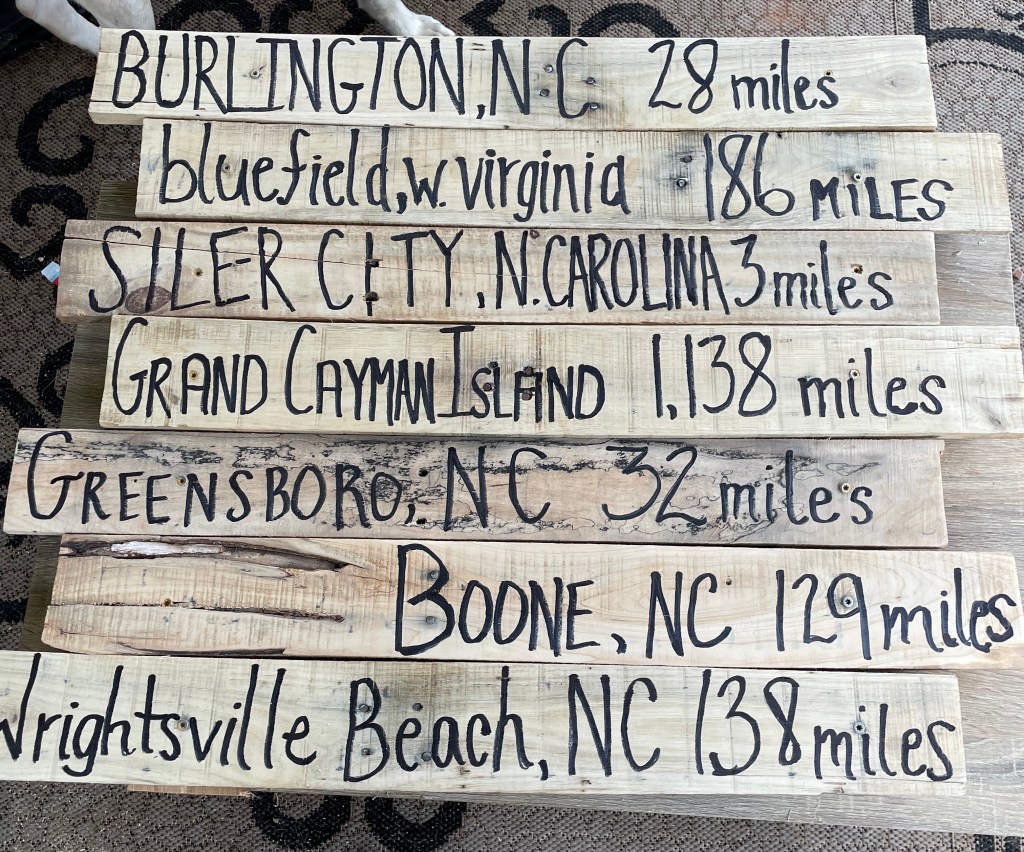 BURLINGTON, NC 28 miles
bluefield, w. virginia 186 MiLES
SILER CITY, N. CAROLINA 3 miles
GRAND CAYMAN ISLAND 1,138 miles
GREENSBORO, NC 32 miles
BOONE, NC 129 miles
Wrightsville Beach, NC 138 miles